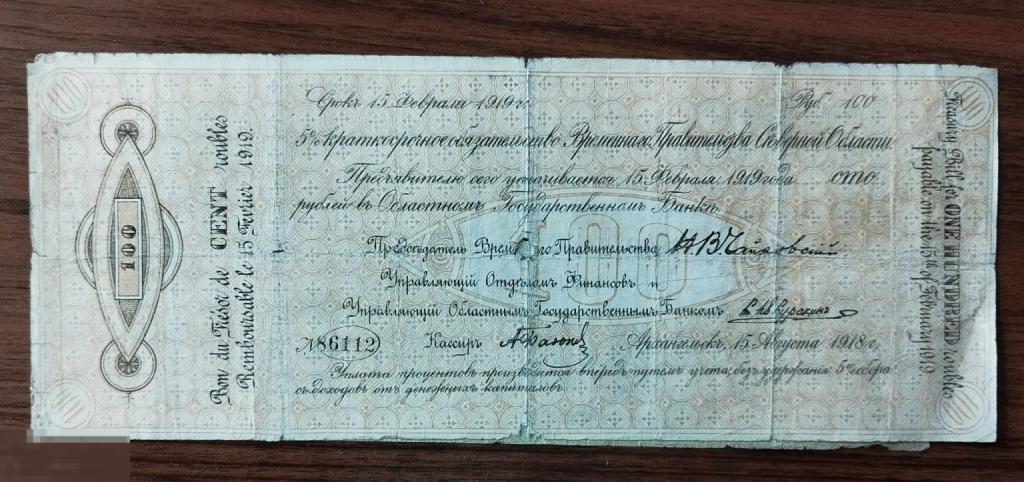 Срокъ 15 Февраля 1919 г. Руб. 100
5% краткосрочное обязательство Временнаго Правительства Сѣверной Области.
Предъявителю сего уплачивается 15 Февраля 1919 года сто
рублей въ Областномъ Государственномъ Банкѣ.
Предсѣдатель Временнаго Правительства Н В Чайковский
Управляющій Отдѣломъ Финансовъ и
Управляющій Областнымъ Государственнымъ Банкомъ
№ 86112 Кассиръ Архангельскъ, 15 Августа 1918 г.
Уплата процентовъ производится впередъ путемъ учета; безъ удержанія 5% сбора
съ доходовъ отъ денежныхъ капиталовъ.
100
Bon du Trésor de CENT roubles
Remboursable le 15 Fevrier 1919.
Treasury Bill for ONE HUNDRED roubles
payable on the 15th of February 1919
100